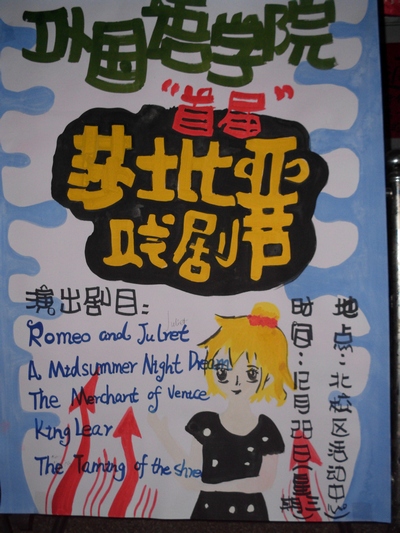 外国语学院
“首届”
莎士比亚
戏剧节
演出剧目:
Romeo and Julret
Juliet
A Midsummer Night Dream
The Merchant of Venice
King Lear
The Taming of the shre
地点:北校区
时间:12月22日